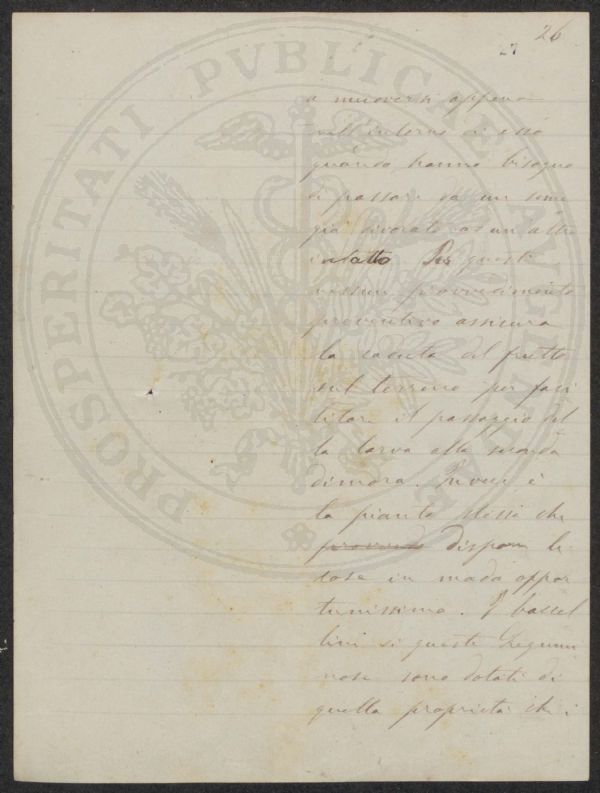 26
27
a muoversi appena
nell'interno di esso
quando hanno bisogno
di passare da un seme
già divorato ad un altro
intatto. Per questi
nessun provvedimento
preventivo assicura
la caduta del frutto
sul terreno per faci
litare il passaggio del
la larva alla seconda
dimora. Invece è
la pianta stessa che
dispone le
cose in modo oppor
tunissimo. I baccel
lini di queste Legumi
nose sono dotati di
quella proprietà che i
PROSPERITATI PVBLICAE AVGENDAE